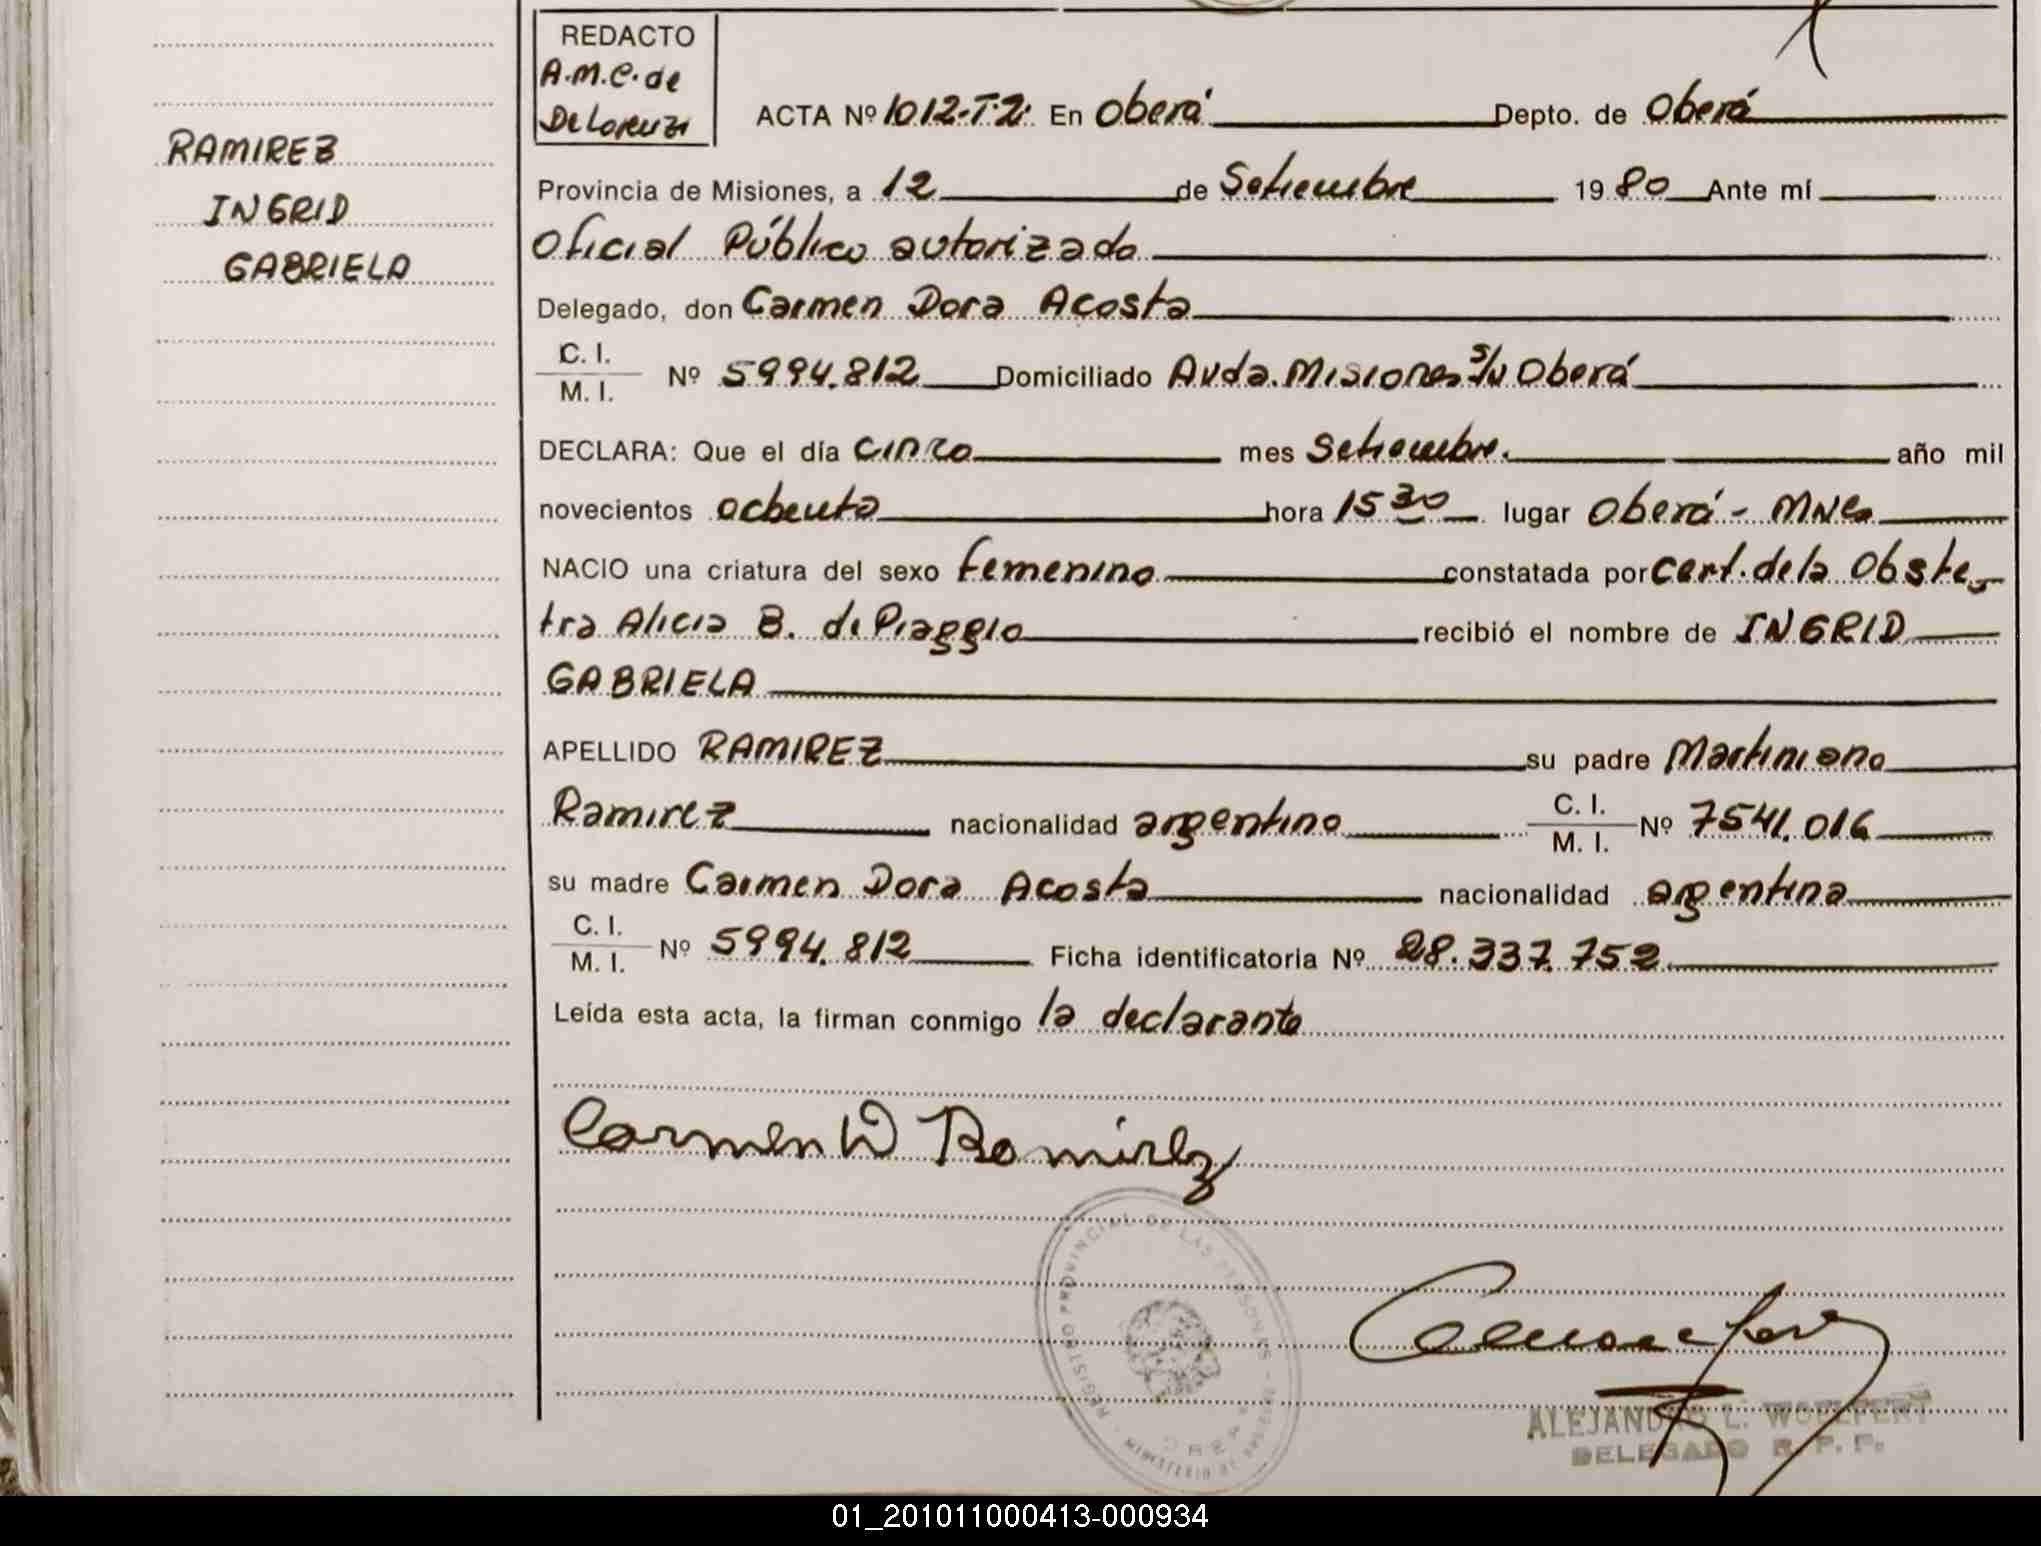 REDACTO
A.M.C. de
De Lorenzi
RAMIREZ
INGRID
GABRIELA
ACTA Nº 1012-T.2. En Oberá Depto. de Oberá
Provincia de Misiones, a 12 de Setiembre 1980 Ante mí
Oficial Público autorizado
Delegado, don Carmen Dora Acosta
C. I.
M. I. Nº 5994.812 Domiciliado Avda. Misiones s/n Oberá
DECLARA: Que el día cinco mes Setiembre. año mil
novecientos ochenta hora 15 30 lugar Oberá - Mnes
NACIO una criatura del sexo femenino constatada por cert. de la Obste-
tra Alicia B. de Piaggio recibió el nombre de INGRID
GABRIELA
APELLIDO RAMIREZ su padre Martiniano
Ramirez nacionalidad argentino C. I. M. I. Nº 7541.016
su madre Carmen Dora Acosta nacionalidad argentina
C. I. M. I. Nº 5994.812 Ficha identificatoria Nº 28.337.752
Leída esta acta, la firman conmigo la declarante
Carmen D Ramirez
REGISTRO PROVINCIAL DE LAS PERSONAS
MINISTERIO DE
ALEJANDRO L. WOELFERT
DELEGADO R. P. P.
01_201011000413-000934